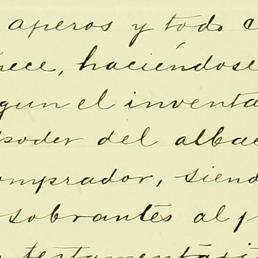 aperos y todo c
ece, haciéndose
gun el inventa
poder del albac
omprador, siend
sobrantes al p
testamentari